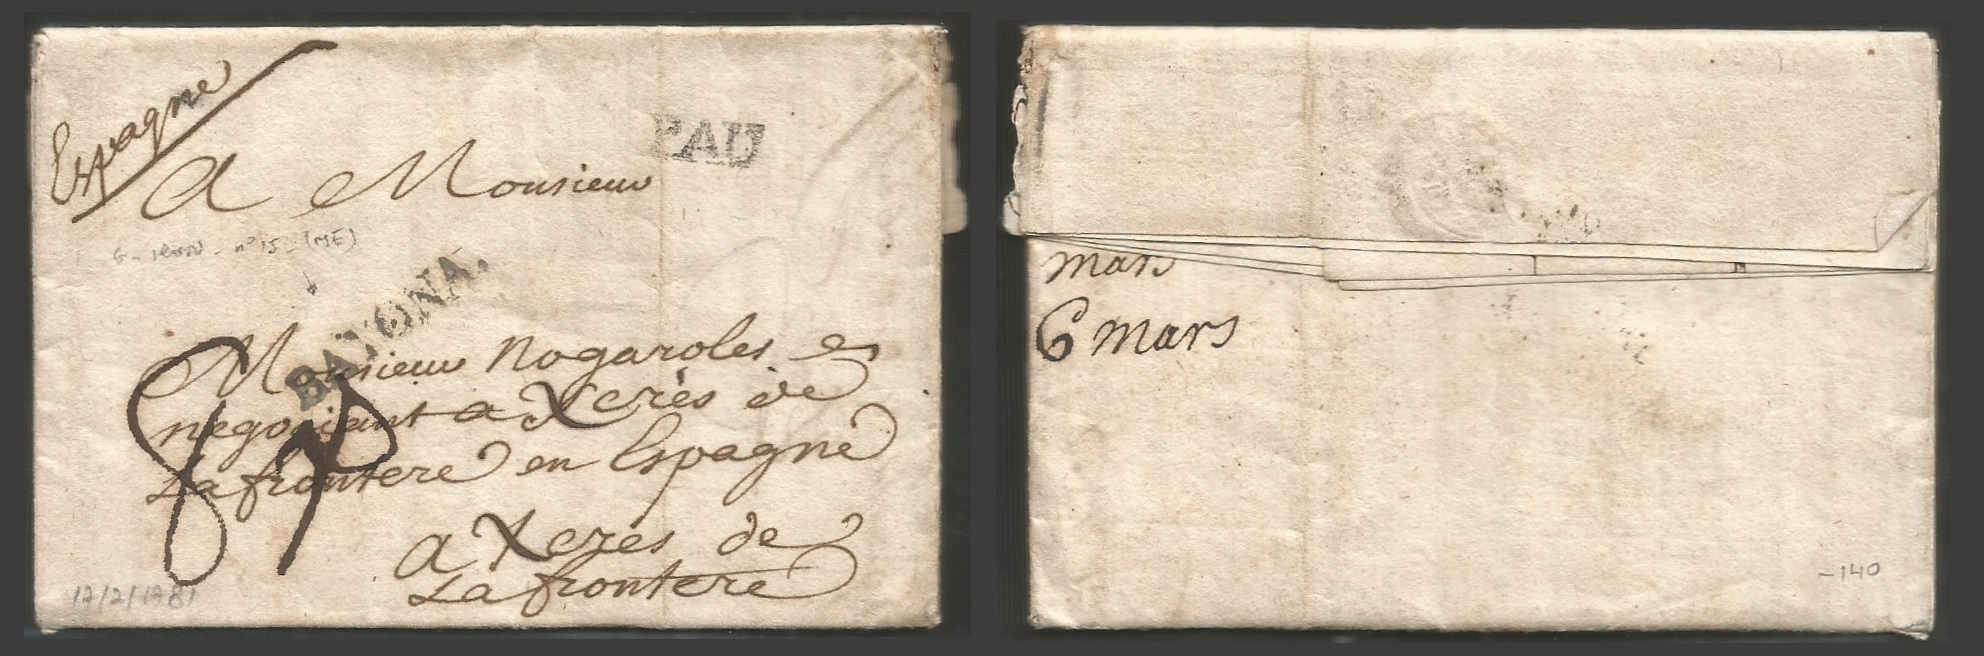 Espagne
A Monsieur
PAU
nº 15 - (ME)
BAYONA.
Monsieur Nogaroles
negociant a Xerés de
La frontere en Espagne
a Xerés de
La frontere
12/2/1781
mars
6 mars
-140